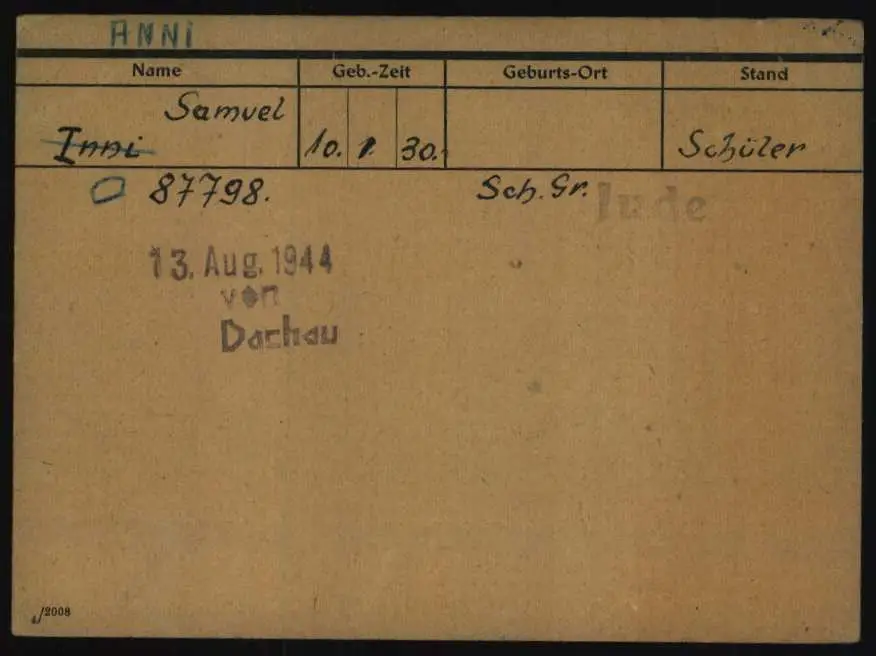 ANNi
Name Geb.-Zeit Geburts-Ort Stand
Samuel
Inni 10. 1. 30. Schüler
87798. Sch. Gr. Jude
13. Aug. 1944
von
Dachau
4/2008